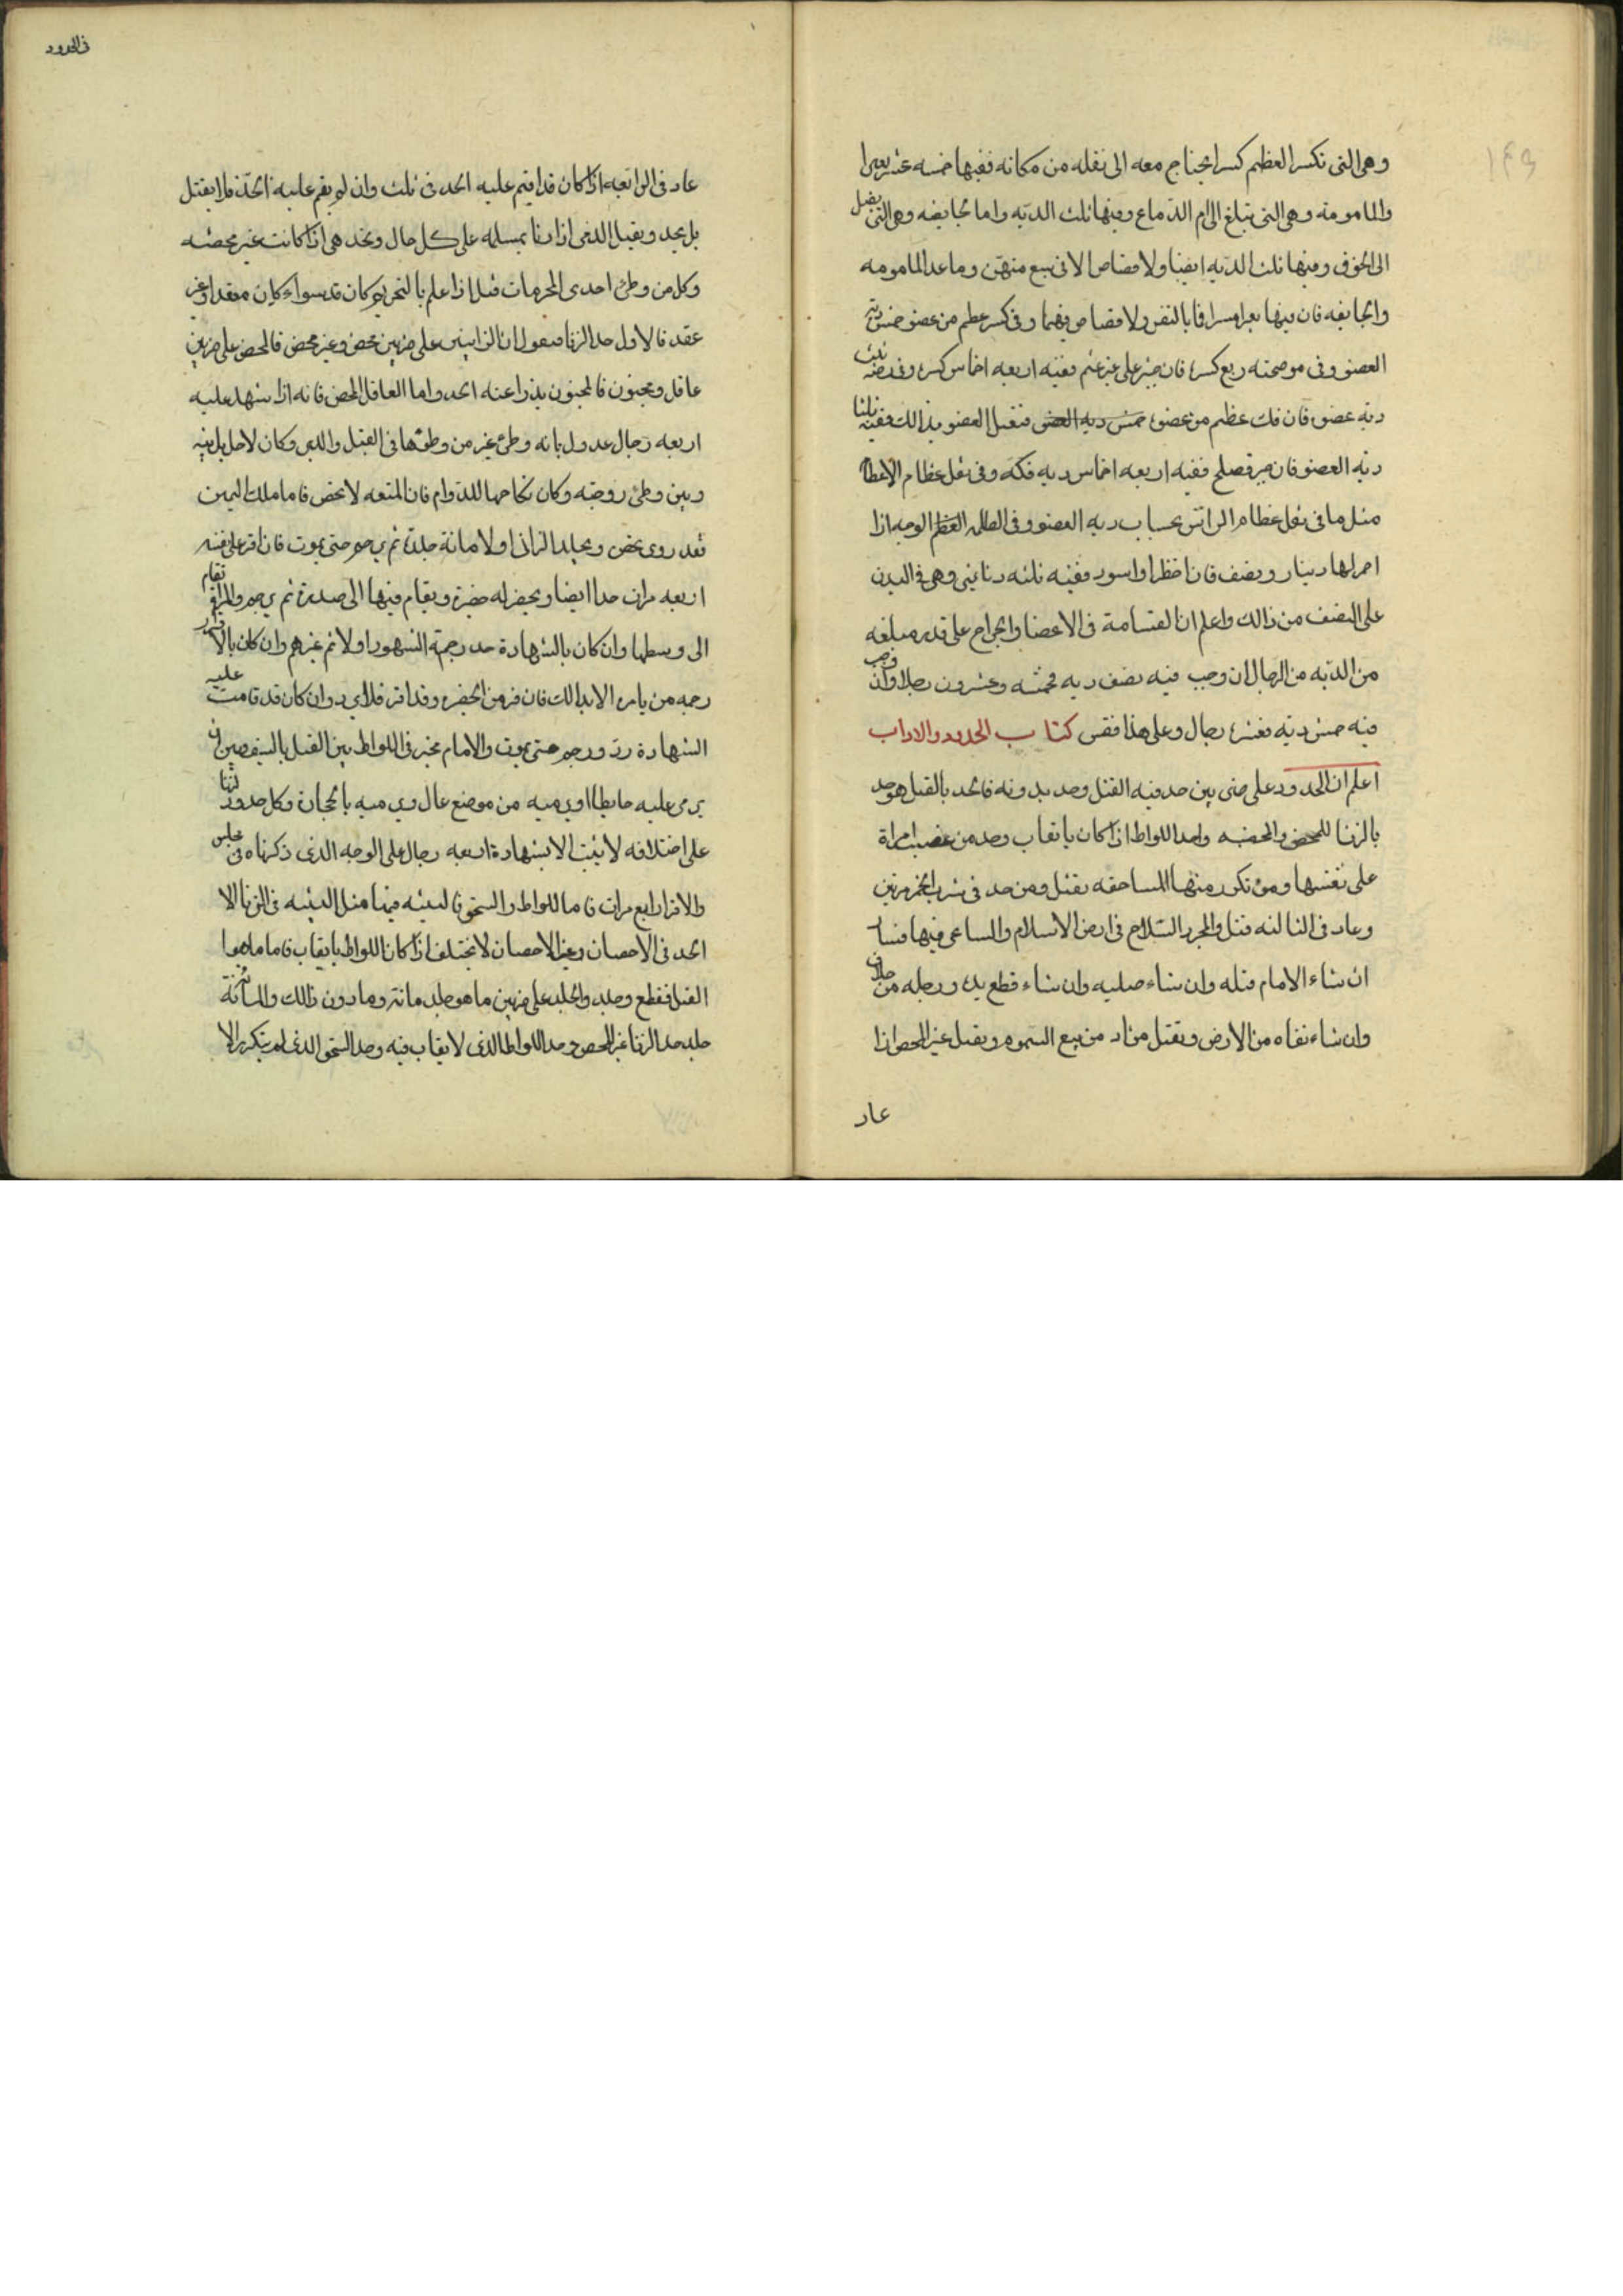 ١٤٩
وهى التى تكسر العظم كسرا يحتاج معه الى نقله من مكانه ففيها خمسه عشر بعيرا
والمامومة وهى التى تبلغ الى ام الدماغ وفيها ثلث الديه واما الجايفه وهى التى تصل
الى الجوف وفيها ثلث الديه ايضا ولا قصاص الا فى سبع منهن وما عدا المامومه
والجايفه فان فيها ولا قصاص فيهما وفى كسر عظم من عضو خمس دية
العضو وفى موضحته ربع كسره فان جبر على غير عثم ففيه اربعه اخماس كسره وفى رضه ثلث
ديه عضوه فان فك عظم من عضوه خمس ديه العضو فتعطل العضو بذالك ففيه ثلثا
ديه العضو فان جبر فصلح ففيه اربعه اخماس ديه فكه وفى نقل عظام الاعضا
مثل ما فى نقل عظام الراس بحساب ديه العضو وفى الوجه اذا
احمر لها دينار ونصف فان اخضر او اسود ففيه ثلثه دنانير وهى فى البدن
على النصف من ذالك واعلم ان القسامة فى الاعضا والجراح على قدر مبلغه
من الديه من الرجال ان وجب فيه نصف ديه فخمسه وعشرون رجلا وان وجب
فيه خمس ديه فعشره رجال وعلى هذا فقس كتاب الحدود والاداب
اعلم ان الحدود على ضربين حد فيه القتل وحد بدونه فالحد بالقتل هو حد
بالزنا للمحصن والمحصنه واحد اللواط اذا كان بايقاب وحد من غصب امراة
على نفسها ومن تكرر منها المساحقه يقتل ومن حد فى شرب الخمر مرتين
وعاد فى الثالثه قتل والمجرد السلاح فى ارض الاسلام والساعى فيها فسادا
ان شاء الامام قتله وان شاء صلبه وان شاء قطع يده ورجله من خلاف
وان شاء نفاه من الارض ويقتل من يبيع السموم ويقتل غير المحصن اذا
عاد
فى الحدود
عاد فى الرابعه اذا كان قد اقيم عليه الحد فى ثلث وان لم يقم عليه الحد فلا يقتل
بل يحد ويقتل الذمى اذا زنا بمسلمه على كل حال وتحد هى اذا كانت غير محصنه
وكل من وطئ احدى المحرمات قتل اذا علم بالتحريم كان قد سواء كان بعقد او غير
عقد فالاول حد الزنا فنقول ان الزانيين على ضربين محصن وغير محصن فالمحصن على ضربين
عاقل ومجنون فالمجنون يدرا عنه الحد واما العاقل المحصن فانه اذا شهد عليه
اربعه رجال عدول بانه وطئ غير من وطئها فى القبل والدبر وكان لا حايل بينه
وبين وطئ زوجته وكان نكاحها للدوام فان المتعه لا تحصن فاما ملك اليمين
فقد روى يحصن ويجلد الزانى اولا مائة جلدة ثم يرجم حتى يموت فان اقر على نفسه
اربعه مرات حد ايضا ويحفر له حفيرة ويقام فيها الى صدره ثم يرجم والمراة تقام
الى وسطها وان كان بالشهادة حد رجمه الشهود اولا ثم غيرهم وان كان بالاقرار
رجمه من يامره الامام بذالك فان فر من الحفيره وقد اقر فلا يرد وان كان قد قامت عليه
الشهادة رد ورجم حتى يموت والامام مخير فى اللواط بين القتل بالسيف وبين ان
يرمى عليه حايطا او يرميه من موضع عال ويرميه بالحجارة وكل حدود الزنا
على اختلافه لا يثبت الا بشهادة اربعه رجال على الوجه الذى ذكرناه فى مجلس
والاقرار اربع مرات فاما اللواط والسحق فالبينه فيها مثل البينه فى الزنا الا
الحد فى الاحصان وغير الاحصان لا يختلف اذا كان اللواط بايقاب فاما ما هو
القتل فقطع وجلد والجلد على ضربين ما هو جلد مائة وما دون ذالك والمائة
جلد حد الزنا غير المحصن وحد اللواط الذى لا يقاب فيه وحد السحق الذى لم يتكرر الا